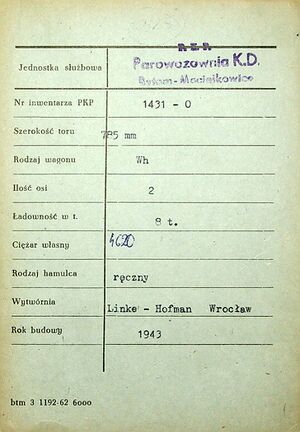 P.K.P.
Jednostka służbowa Parowozownia K.D.
Bytom-Maciejkowice
Nr inwentarza PKP 1431 - 0
Szerokość toru 785 mm
Rodzaj wagonu Wh
Ilość osi 2
Ładowność w t. 8 t.
Ciężar własny 4620
Rodzaj hamulca ręczny
Wytwórnia Linke - Hofman Wrocław
Rok budowy 1943
btm 3 1192-62 6000